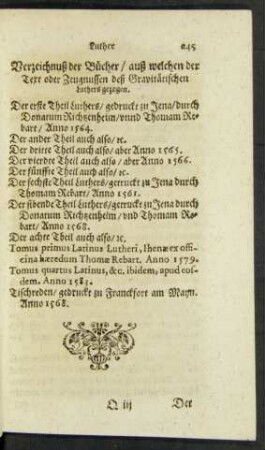 Luther 245
Verzeichnuß der Bücher / auß welchen der
Text oder Zeugnussen deß Gravitätischen
Luthers gezogen.
Der erste Theil Luthers / gedruckt zu Jena / durch
Donatum Richtzenheim / vnnd Thomam Re-
bart / Anno 1564.
Der ander Theil auch also / ꝛc.
Der dritte Theil auch also / aber Anno 1565.
Der vierdte Theil auch also / aber Anno 1566.
Der fünffte Theil auch also / ꝛc.
Der sechste Theil Luthers / getruckt zu Jena durch
Thomam Rebart / Anno 1561.
Der sibende Theil Luthers / getruckt zu Jena durch
Donatum Richtzenheim / vnd Thomam Re-
bart / Anno 1568.
Der achte Theil auch also / ꝛc.
Tomus primus Latinus Lutheri, Ihenæ ex offi-
cina hæredum Thomæ Rebart. Anno 1579.
Tomus quartus Latinus, &c. ibidem, apud eos-
dem. Anno 1583.
Tischreden / gedruckt zu Franckfort am Mayn.
Anno 1568.
Q iij Der